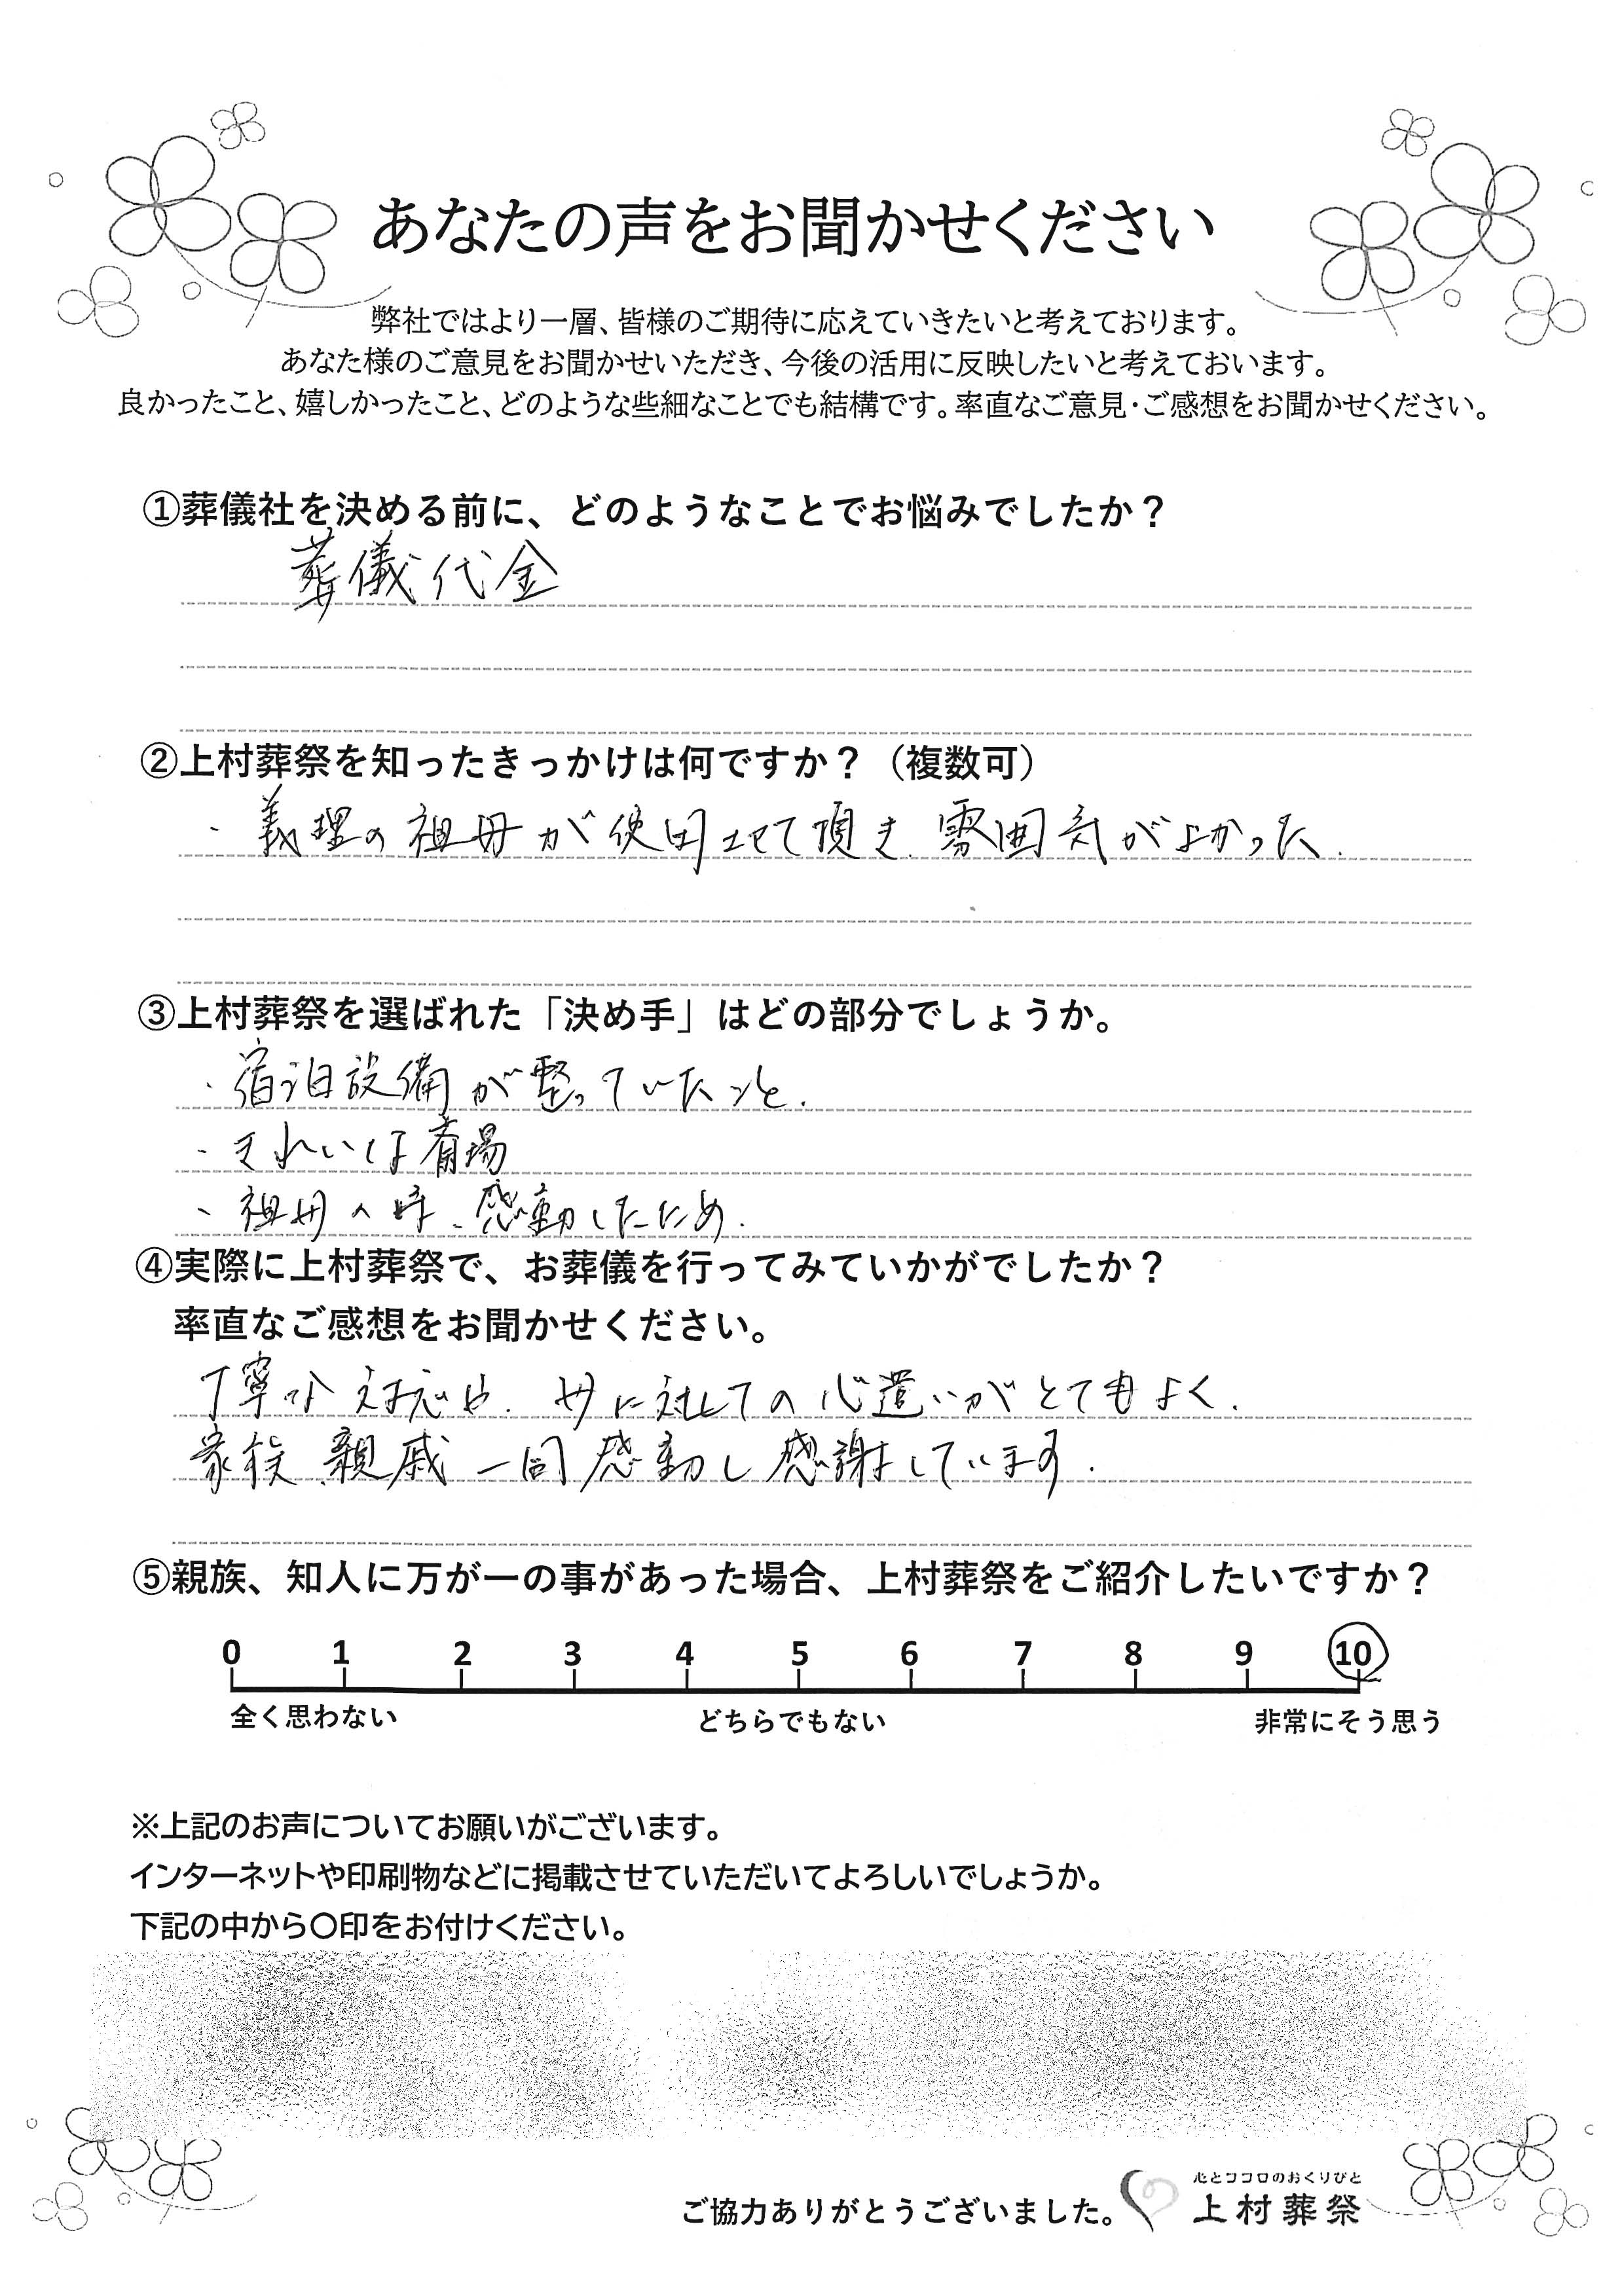 あなたの声をお聞かせください
弊社ではより一層、皆様のご期待に応えていきたいと考えております。
あなた様のご意見をお聞かせいただき、今後の活用に反映したいと考えておいます。
良かったこと、嬉しかったこと、どのような些細なことでも結構です。率直なご意見・ご感想をお聞かせください。
①葬儀社を決める前に、どのようなことでお悩みでしたか？
葬儀代金
②上村葬祭を知ったきっかけは何ですか？（複数可）
・義理の祖母が使用させて頂き、雰囲気がよかった.
③上村葬祭を選ばれた「決め手」はどの部分でしょうか。
・宿泊設備が整っていたこと.
・きれいな斎場
・祖母の時、感動したため.
④実際に上村葬祭で、お葬儀を行ってみていかがでしたか？
率直なご感想をお聞かせください。
丁寧な対応や、母に対しての心遣いがとてもよく.
家族、親戚一同感動し感謝しています.
⑤親族、知人に万が一の事があった場合、上村葬祭をご紹介したいですか？
0 1 2 3 4 5 6 7 8 9 10
全く思わない どちらでもない 非常にそう思う
※上記のお声についてお願いがございます。
インターネットや印刷物などに掲載させていただいてよろしいでしょうか。
下記の中から〇印をお付けください。
心とココロのおくりびと
ご協力ありがとうございました。 上村葬祭